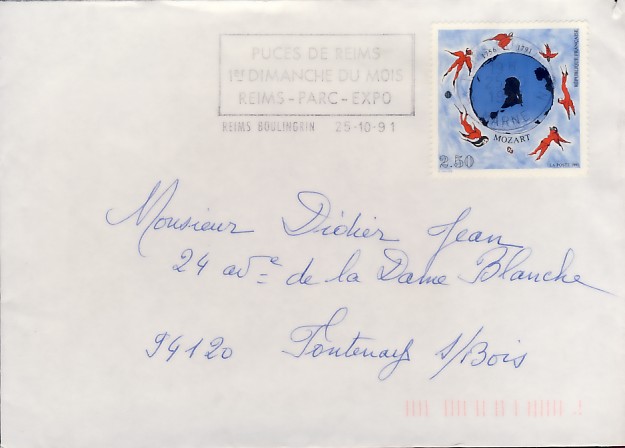 PUCES DE REIMS
1er DIMANCHE DU MOIS
REIMS-PARC-EXPO
REIMS BOULINGRIN 25-10-91
1756 1791
RÉPUBLIQUE FRANÇAISE
MARNE
MOZART
2.50
LA POSTE 1991
Monsieur Didier Jean
24 ave de la Dame Blanche
94120 Fontenay s/Bois